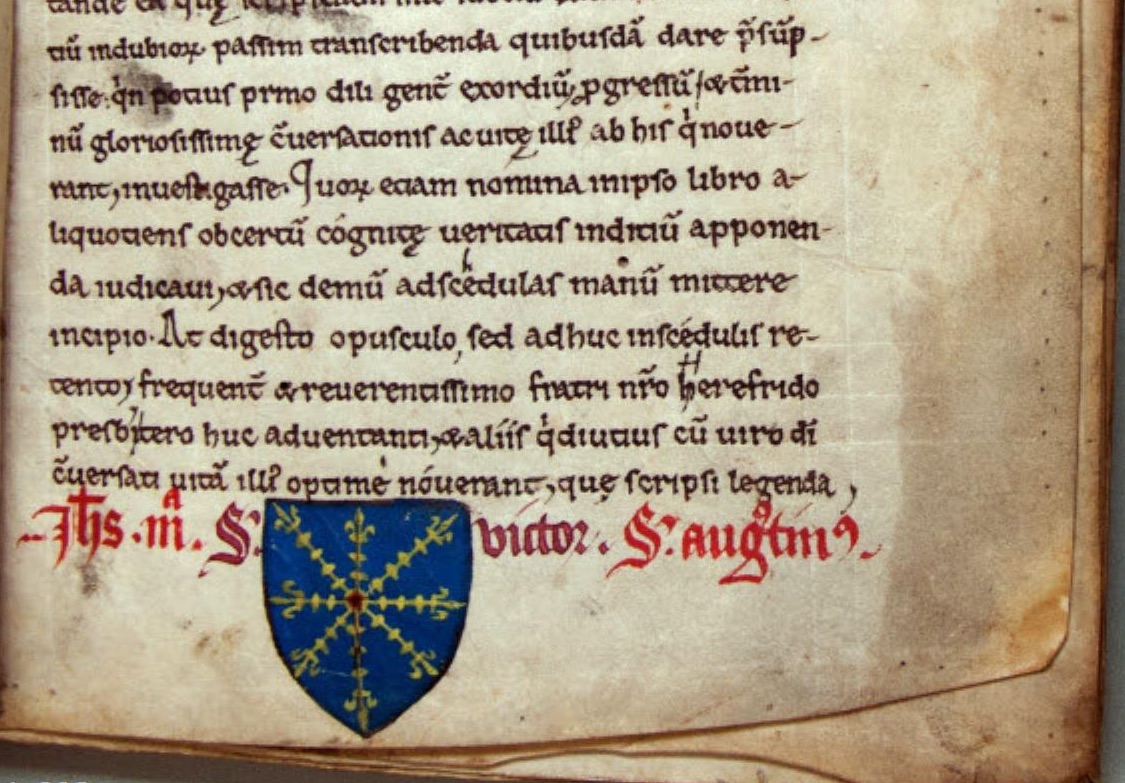 tande ea quę
tiū indubioꝝ passim transcribenda quibusdā dare p̄sūp-
sisse. qͥn potius prmo dili gent̄ exordiū, ꝓgressū, & t̄mi-
nū gloriosissimę c̄uersationis ac uitę illiꝰ ab his qͥ noue-
rant, inuestigasse. Quoꝝ etiam nomina in ipso libro a-
liquotiens ob certū cógnitę ueritatis inditiū apponen-
da iudicaui, & sic demū ad scedulas manū mittere
incipio. At digesto opusculo, sed adhuc in scedulis re-
tento, frequent̄ & reuerentissimo fratri nr̄o Herefrido
presbitero huc aduentanti, & aliis qͥ diutius cū uiro dī
c̄uersati uitā illiꝰ optime nouerant, quę scripsi legenda,
Jhs . mᵃ. S. victor . S. augᵒtinꝰ.